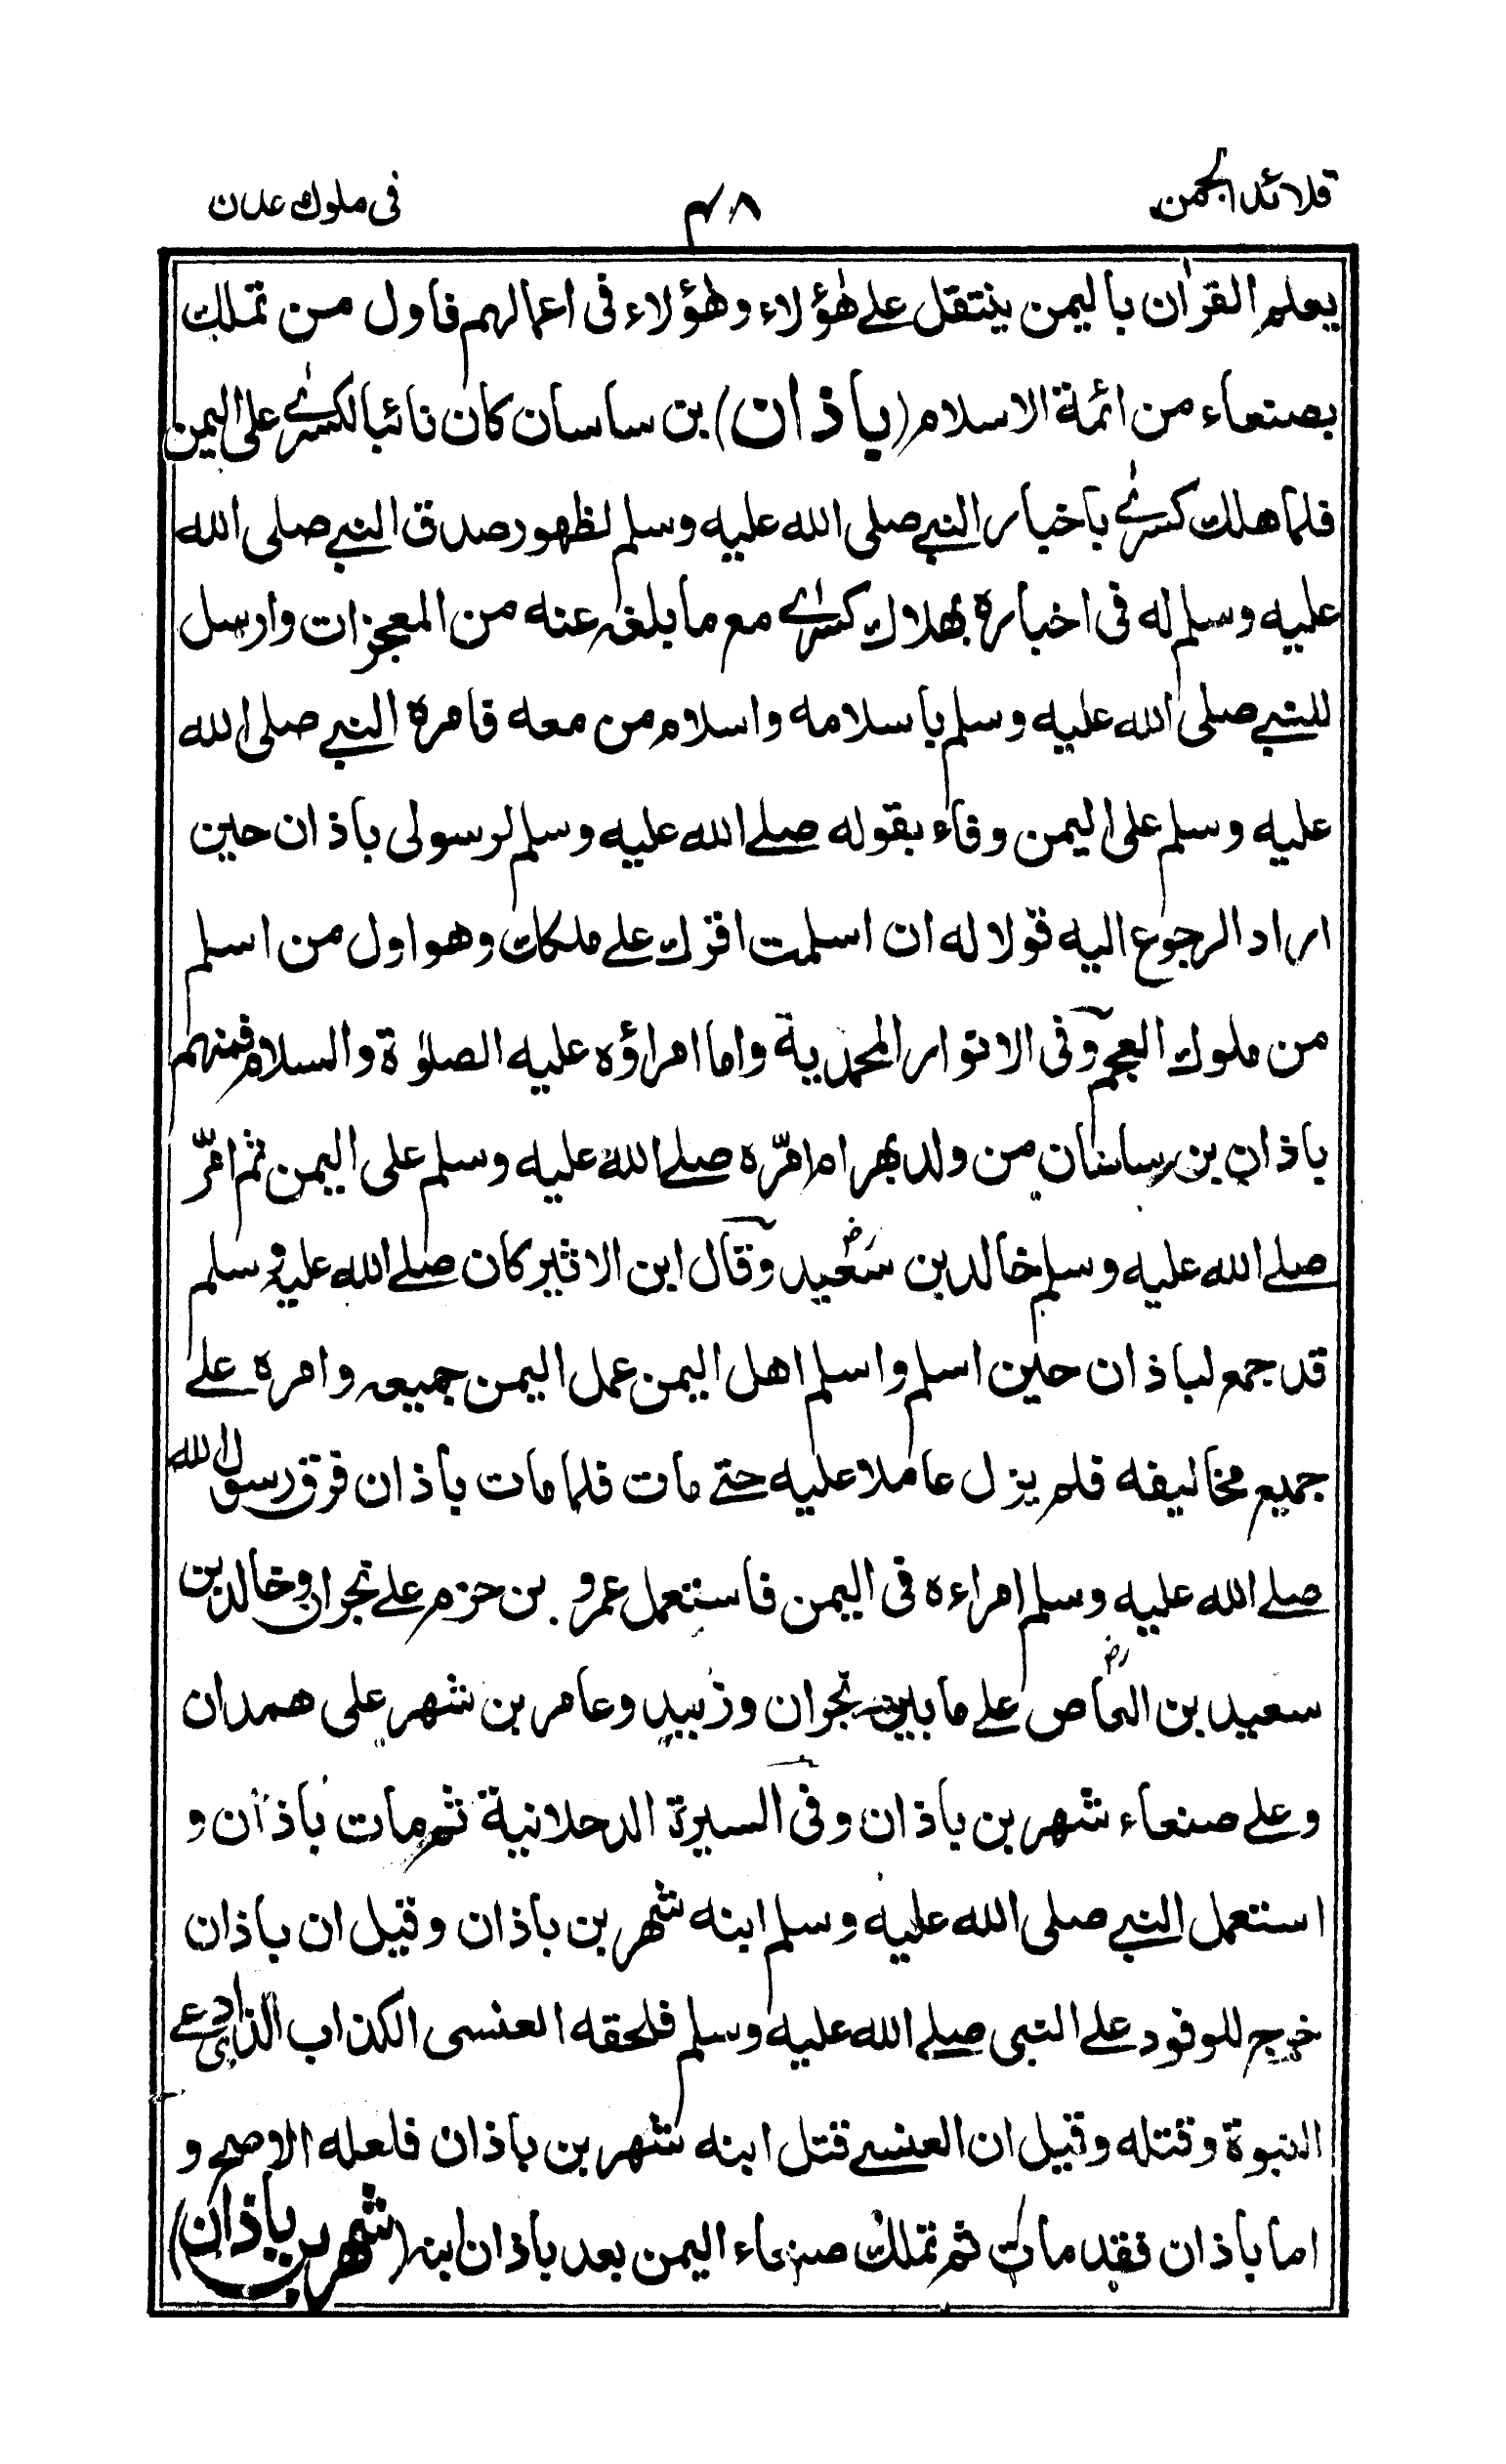 قلائد الجمن ٤٨ فى ملوك عدن
يعلم القرآن باليمن ينتقل على هٰؤلاء وهٰؤلاء فى اعمالهم فاول من تملك
بصنعاء من ائمة الاسلام (باذان) بن ساسان كان نائبا لكسرىٰ على اليمن
فلما هلك كسرىٰ باخبار النبي صلى الله عليه وسلم لظهور صدق النبي صلى الله
عليه وسلم له فى اخباره بهلاك كسرىٰ مع ما بلغه عنه من المعجزات وارسل
للنبي صلى الله عليه وسلم باسلامه واسلام من معه فامره النبي صلى الله
عليه وسلم على اليمن وفاء بقوله صلى الله عليه وسلم لرسولى باذان حين
اراد الرجوع اليه قولا له ان اسلمت اقرك على ملكك وهو اول من اسلم
من ملوك العجم وفى الانوار المحمدية واما امراؤه عليه الصلوٰة والسلام فمنهم
باذان بن ساسان من ولد بهرام امّره صلى الله عليه وسلم على اليمن ثم امّر
صلى الله عليه وسلم خالد بن سعيد رض وقال ابن الاثير كان صلى الله عليه وسلم
قد جمع لباذان حين اسلم واسلم اهل اليمن عمل اليمن جميعه وامره على
جميع مخاليفه فلم يزل عاملا عليه حتى مات فلما مات باذان فرق رسول الله
صلى الله عليه وسلم امراءه فى اليمن فاستعمل عمرو بن حزم على نجران وخالد بن
سعيد بن العاص رض على ما بين نجران وزبيد وعامر بن شهر على همدان
وعلى صنعاء شهر بن باذان وفى السيرة الدحلانية ثم مات باذان و
استعمل النبي صلى الله عليه وسلم ابنه شهر بن باذان وقيل ان باذان
خرج للوفود على النبى صلى الله عليه وسلم فلحقه العنسى الكذاب الذى ادعى
النبوة وقتله وقيل ان العنسى قتل ابنه شهر بن باذان فلعله الاصح و
اما باذان فقد مات ثم تملك صنعاء اليمن بعد باذان ابنه (شهر بن باذان)